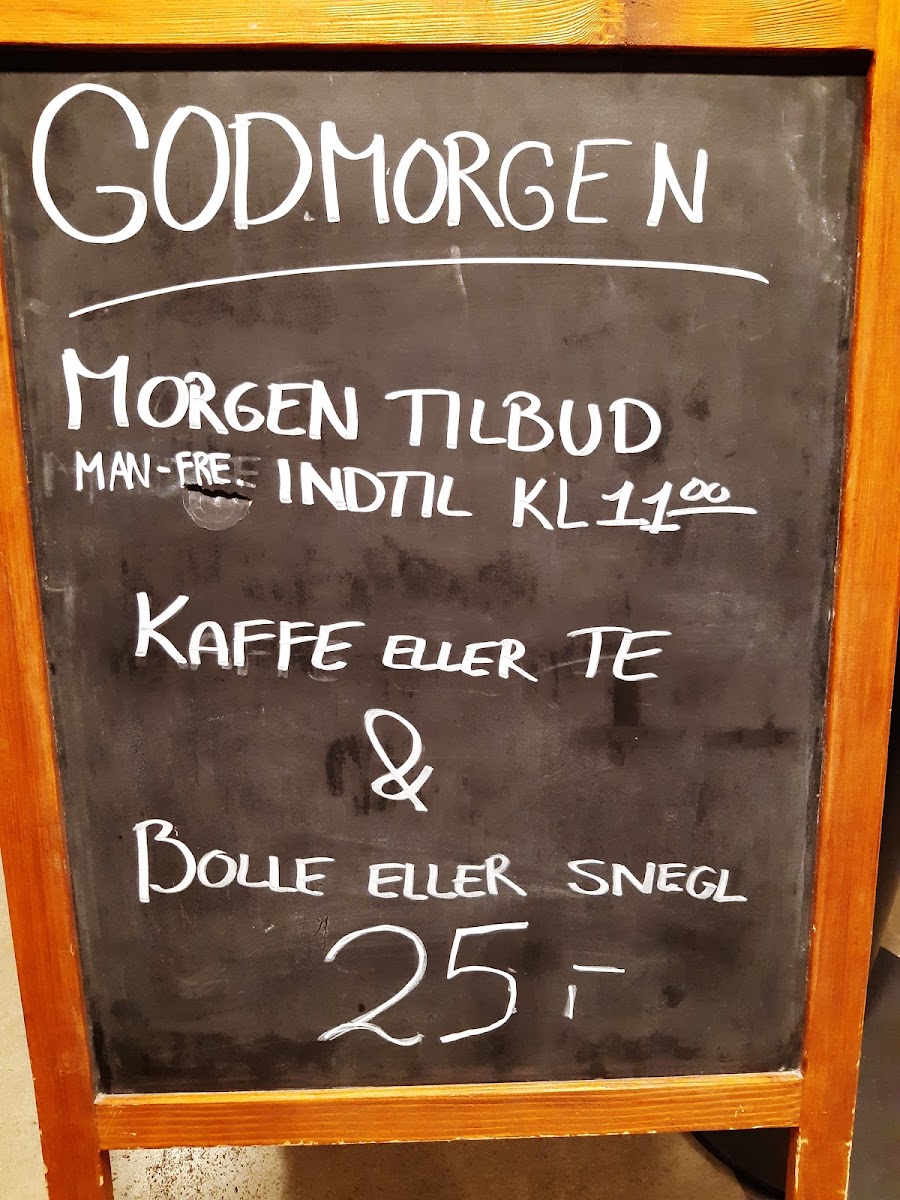 GODMORGEN
MORGEN TILBUD
MAN-FRE. INDTIL KL 11⁰⁰
KAFFE ELLER TE
&
BOLLE ELLER SNEGL
25,-